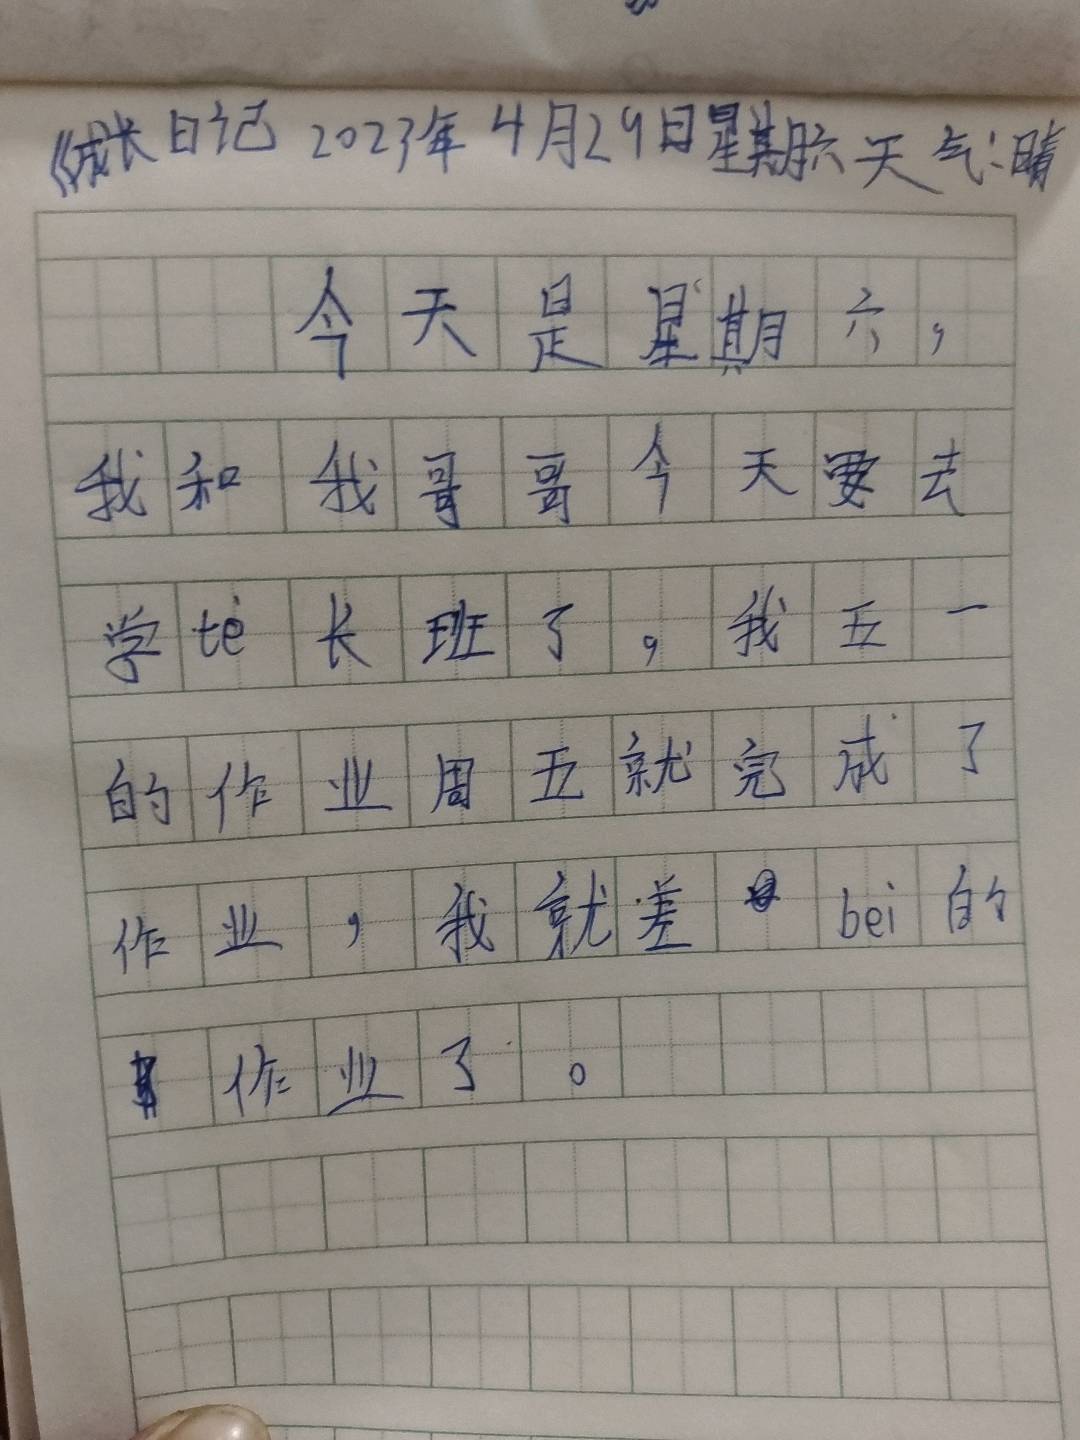 《成长日记 2023年 4月29日星期六天气:晴
今天是星期六，
我和我哥哥今天要去
学tè长班了，我五一
的作业周五就完成了
作业，我就差bei的
作业了。